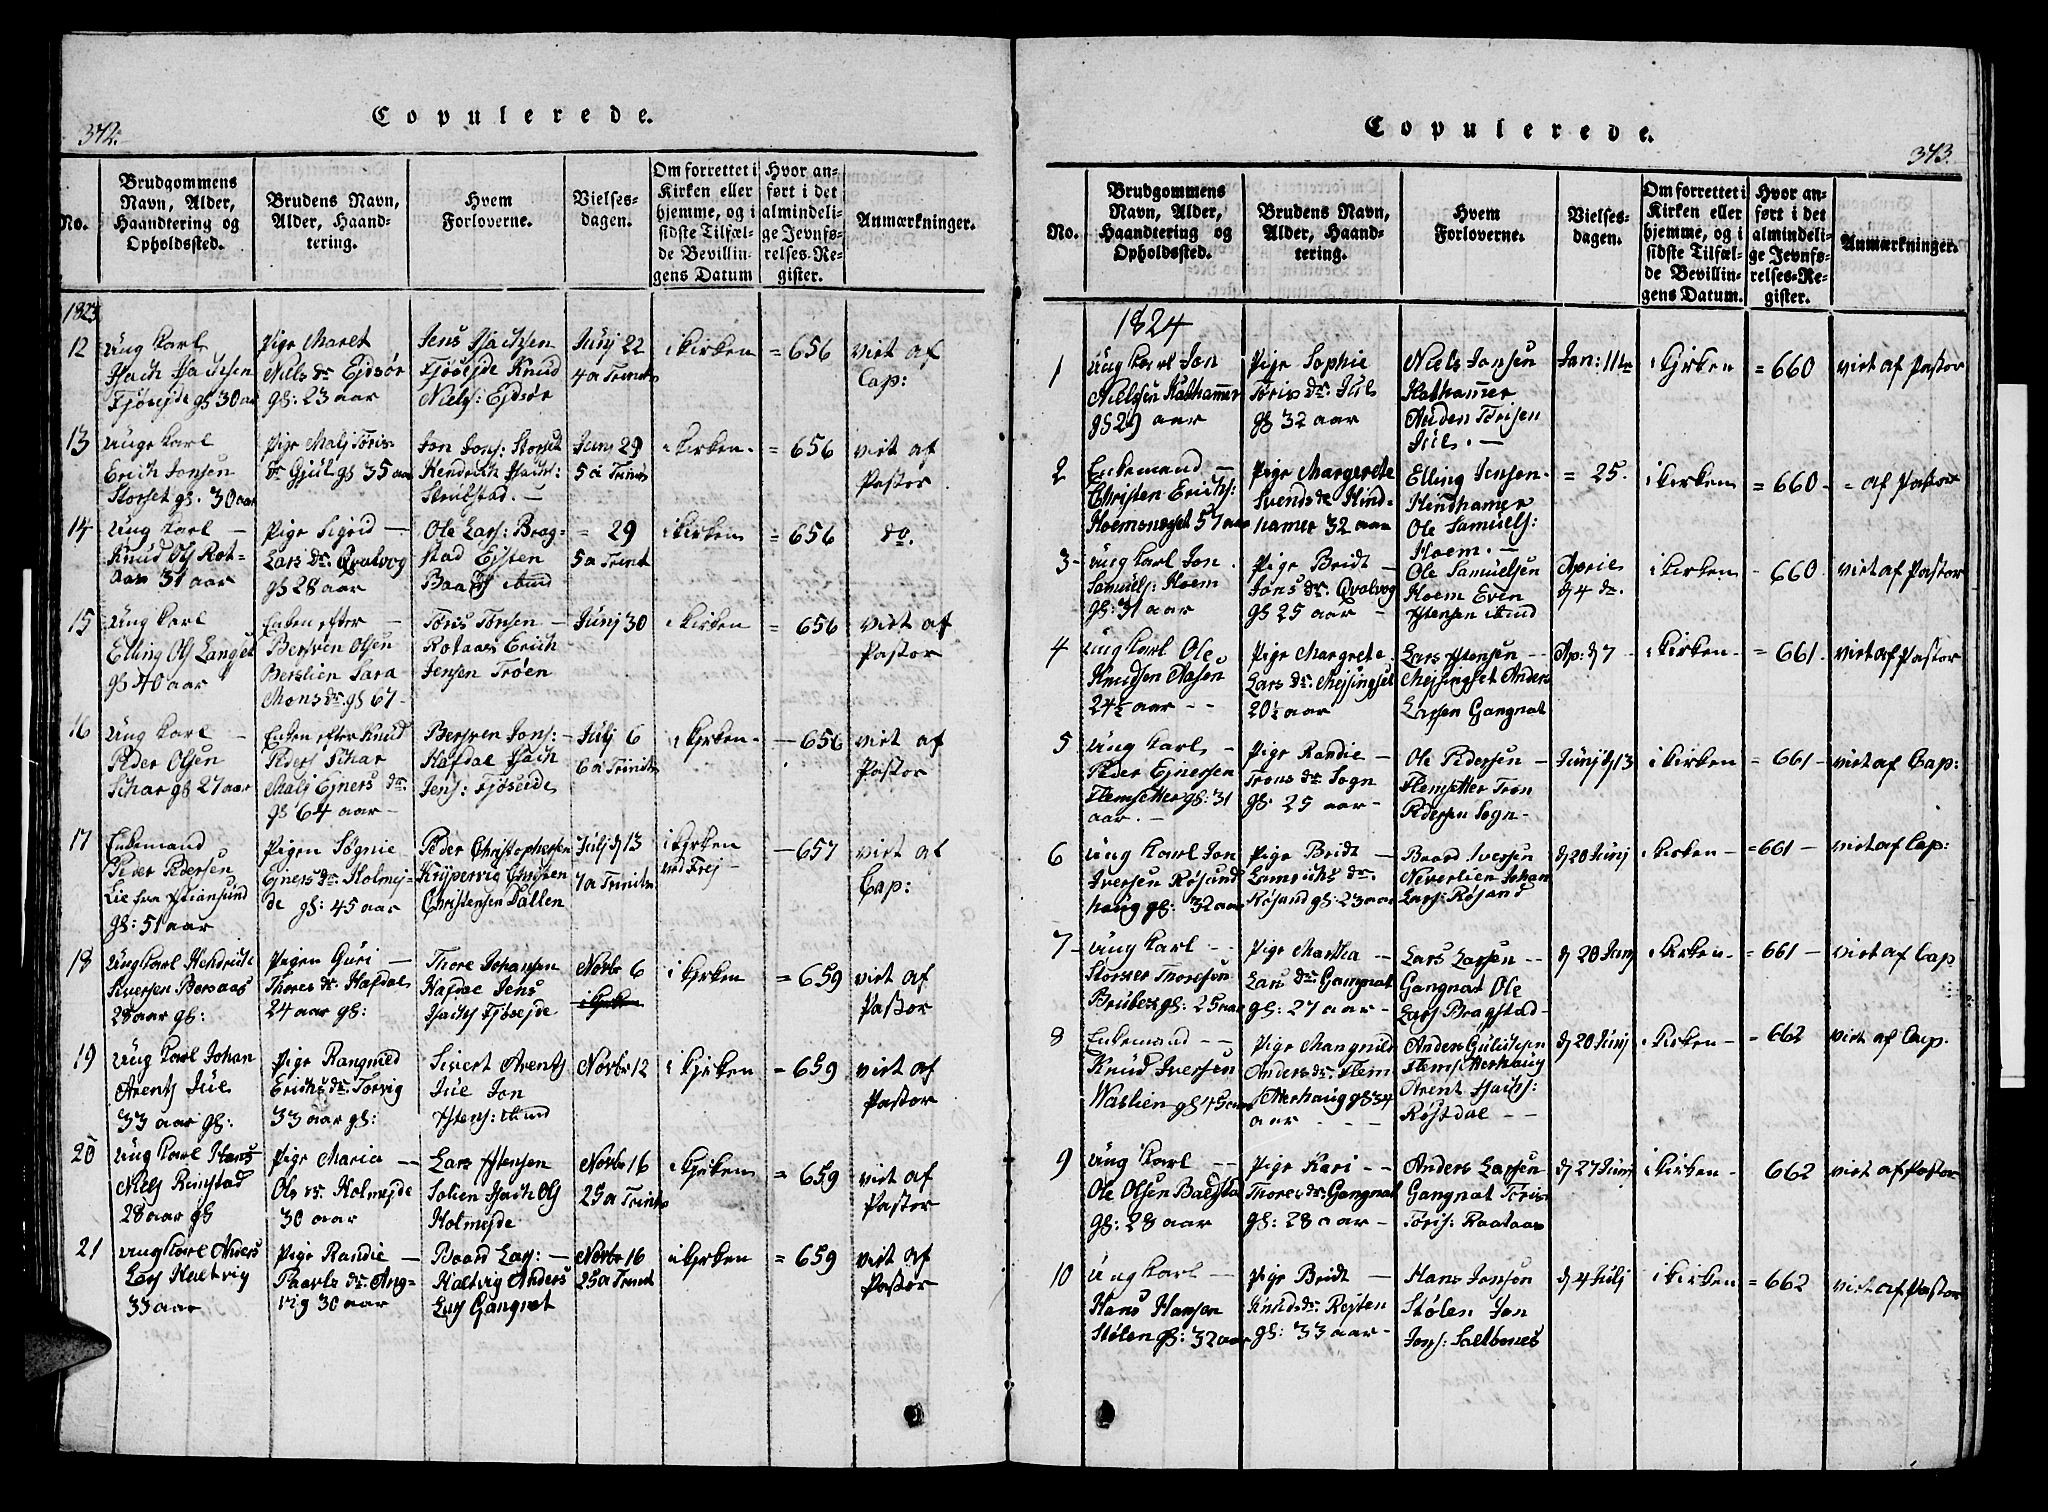 372.
Copulerede.
No.
Brudgommens Navn, Alder, Haandtering og Opholdssted.
Brudens Navn, Alder, Haandtering.
Hvem Forloverne.
Vielsesdagen.
Om forrettet i Kirken eller hjemme, og i sidste Tilfælde Bevillingens Datum
Hvor anført i det almindelige Jevnførelses-Register.
Anmærkninger.
1823
12
Ung Karl
Isach Isachsen
Fjøsejde gl 30 aar
Pige Maret
Niels dr Ejdsør
gl: 23 aar
Jens Isachsen
Fjøsejde Knud
Niels: Ejdsør
Junj 22
4 a Trinit
i Kirken
= 656
viet af
Cap:
13
Unge Karl
Erich Jonsen
Storset gl. 30 aar
Pige Malj Tøris
dr Gjul gl 35 aar
Jon Jons: Storset
Hendrich Isachs:
Strübstad. —
Junj 29
5 a Trinit
i Kirken -
= 656
viet af
Pastor
14
Ung Karl —
Knud Ols Rot-
aas 31 aar
Pige Sigrid —
Lars dr. Qvalvog
gl 28 aar
Ole Lars: Brag-
stad Ejsten
= 29
5 a Trinit
i Kirken
= 656
do.
15
Ung Karl
Elling Ols Langset
gl 40 aar
Enken efter —
Bersven Olsen
Berslien Sara
Mons dr. gl 67 -
Tøris Tønsen —
Rotaas Erich
Jensen Trøen
Junj 30
i Kirken
= 656
viet af
Pastor
16
Ung Karl —
Peder Olsen
Schar gl 27 aar
Enken efter Knud
Peders Schar
Malj Ejners dr.
gl 64 aar —
Bersven Jons: —
Hafdal Isach
Jens: Fjøseide
Julj 6
6 a Trinit
i Kirken -
— 656
viet af
Pastor
17
Enkemand
Peder Pedersen
Lie fra Christiansund
gl: 51 aar
Pigen Søgnie
Ejners dr. Holmej-
de gl: 45 aar
Peder Christophersen
Christensen Dallen
Julj d 13
7 a Trinit
i Kirken
ved Frej
— 657
viet af
Cap:
18
Ung Karl Hendrich
Siversen Borsaas
28 aar gl:
Pigen Guri —
Thores dr Hafdal
24 aar gl:
Thore Johansen
Hafdal Jens
Isachs Fjøsejde
Novbr 6
i Kirken
i Kirken
= 659
viet af
Pastor
19
Ung Karl Johan
Arents Jul
33 aar gl:
Pige Rangnied
Erichs dr Torvig
33 aar gl:
Sivert Arents
Jul Jon
Novbr 12
i Kirken
= 659
viet af
Pastor
20
Ung Karl Hans
Niels Rimstad
28 aar gl
Pige Maria —
Ols dr. Holmejde
30 aar
Lars Istensen
Solien Isach Ols
Holmejde
Novbr 16
25 a Trinit
i Kirken
= 659
viet af
Pastor
21
Ung Karl Anders
Lars Haltvig
33 aar
Pige Randie —
Paarls dr. Ang-
vig 30 aar
Baard Lars: —
Haltvig Anders
Lars Gangnat
Novbr 16
25 a Trinit
i Kirken
= 659
viet af
Pastor
373.
Copulerede.
No.
Brudgommens Navn, Alder, Haandtering og Opholdssted.
Brudens Navn, Alder, Haandtering.
Hvem Forloverne.
Vielsesdagen.
Om forrettet i Kirken eller hjemme, og i sidste Tilfælde Bevillingens Datum.
Hvor anført i det almindelige Jevnførelses-Register.
Anmærkninger.
1824
1
Ung Karl Jon
Nielsen Kathammer
gl 29 aar
Pige Sophie
Tøris dr. Juls
gl 32 aar
Niels Jonsen
Kathammer
Auden Tørisen
Juls. —
Jan: 11te
i Kjrken
= 660
viet af Pastor
2
Enkemand —
Christen Erichs:
Hoemsneset 57 aar
Pige Margerete
Svends dr Hind-
hamer 32 aar
Elling Jensen -
Hindhamer
Ole Samuels:
Hoem. —
= 25.
i Kirken
= 660 -
= af Pastor
3
Ung Karl Jon
Samuels: Hoem
gl: 31 aar
Pige Bridt —
Jons dr: Qvalvog
gl 25 aar —
Ole Samuelsen
Hoem Even
Aprie
d 4 de.
i Kirken
- 660
viet af Pastor
4
Ung Karl Ole
Knudsen Aasen
24½ aar - -
Pige Margrete
Lars dr. Mejsingset
20½ aar
Lars Istensen —
Mejsingset Anders
Larsen Gangnat
Ap: d 7
i Kirken -
= 661
viet af Pastor
5
Ung Karl —
Peder Ejnersen
Flemsetter gl: 31
aar. —
Pige Randie —
Trons dr Sogn
gl: 25 aar —
Ole Pedersen —
Flemsetter Tron
Pedersen Sogn -
Junj d 13
i Kirken
= 661 —
viet af Cap:
6
Ung Karl Jon
Iversen Røsand
haug gl: 32 aar
Pige Bridt —
Røsand gl: 23 aar
Baard Iversen
Neverlien Johan
Lars: Røsand
d 20 Junj
i Kirken —
= 661 —
viet af Cap:
7
Ung Karl - -
Størker Thoresen
gl: 25 aar
Pige Martha —
Lars dr: Gangnat
gl: 27 aar —
Lars Larsen - -
Gangnat Ole
Lars Bragstad -
d 20 Junj
i Kirken -
= 661 —
viet af Cap
8
Enkemand - -
Knud Iversen
Waslien gl 45 aar
Pige Mangnild
Anders dr: Flem
setterhaug gl 34
aar - - -
Flemsetterhaug
Arent Isachs:
Røstdal - -
d 20 Junj
i Kirken —
= 662
viet af Cap.
9
Ung Karl - -
Ole Olsen
gl: 28 aar
Pige Kari - -
Thores dr: Gangnat
gl: 28 aar —
Anders Larsen
Gangnat Tøris
Tøris: Raataas
d 27 Junj
i Kirken -
662
viet af Pastor
10
Ung Karl —
Hans Hansen
Stølen gl: 32 aar
Pige Bridt —
Knuds dr. Rejten
gl: 33 aar —
Hans Jonsen
Stølen Jon
Jons: Saltbones
d 4 Julj
i Kirken
= 662
viet af Pastor